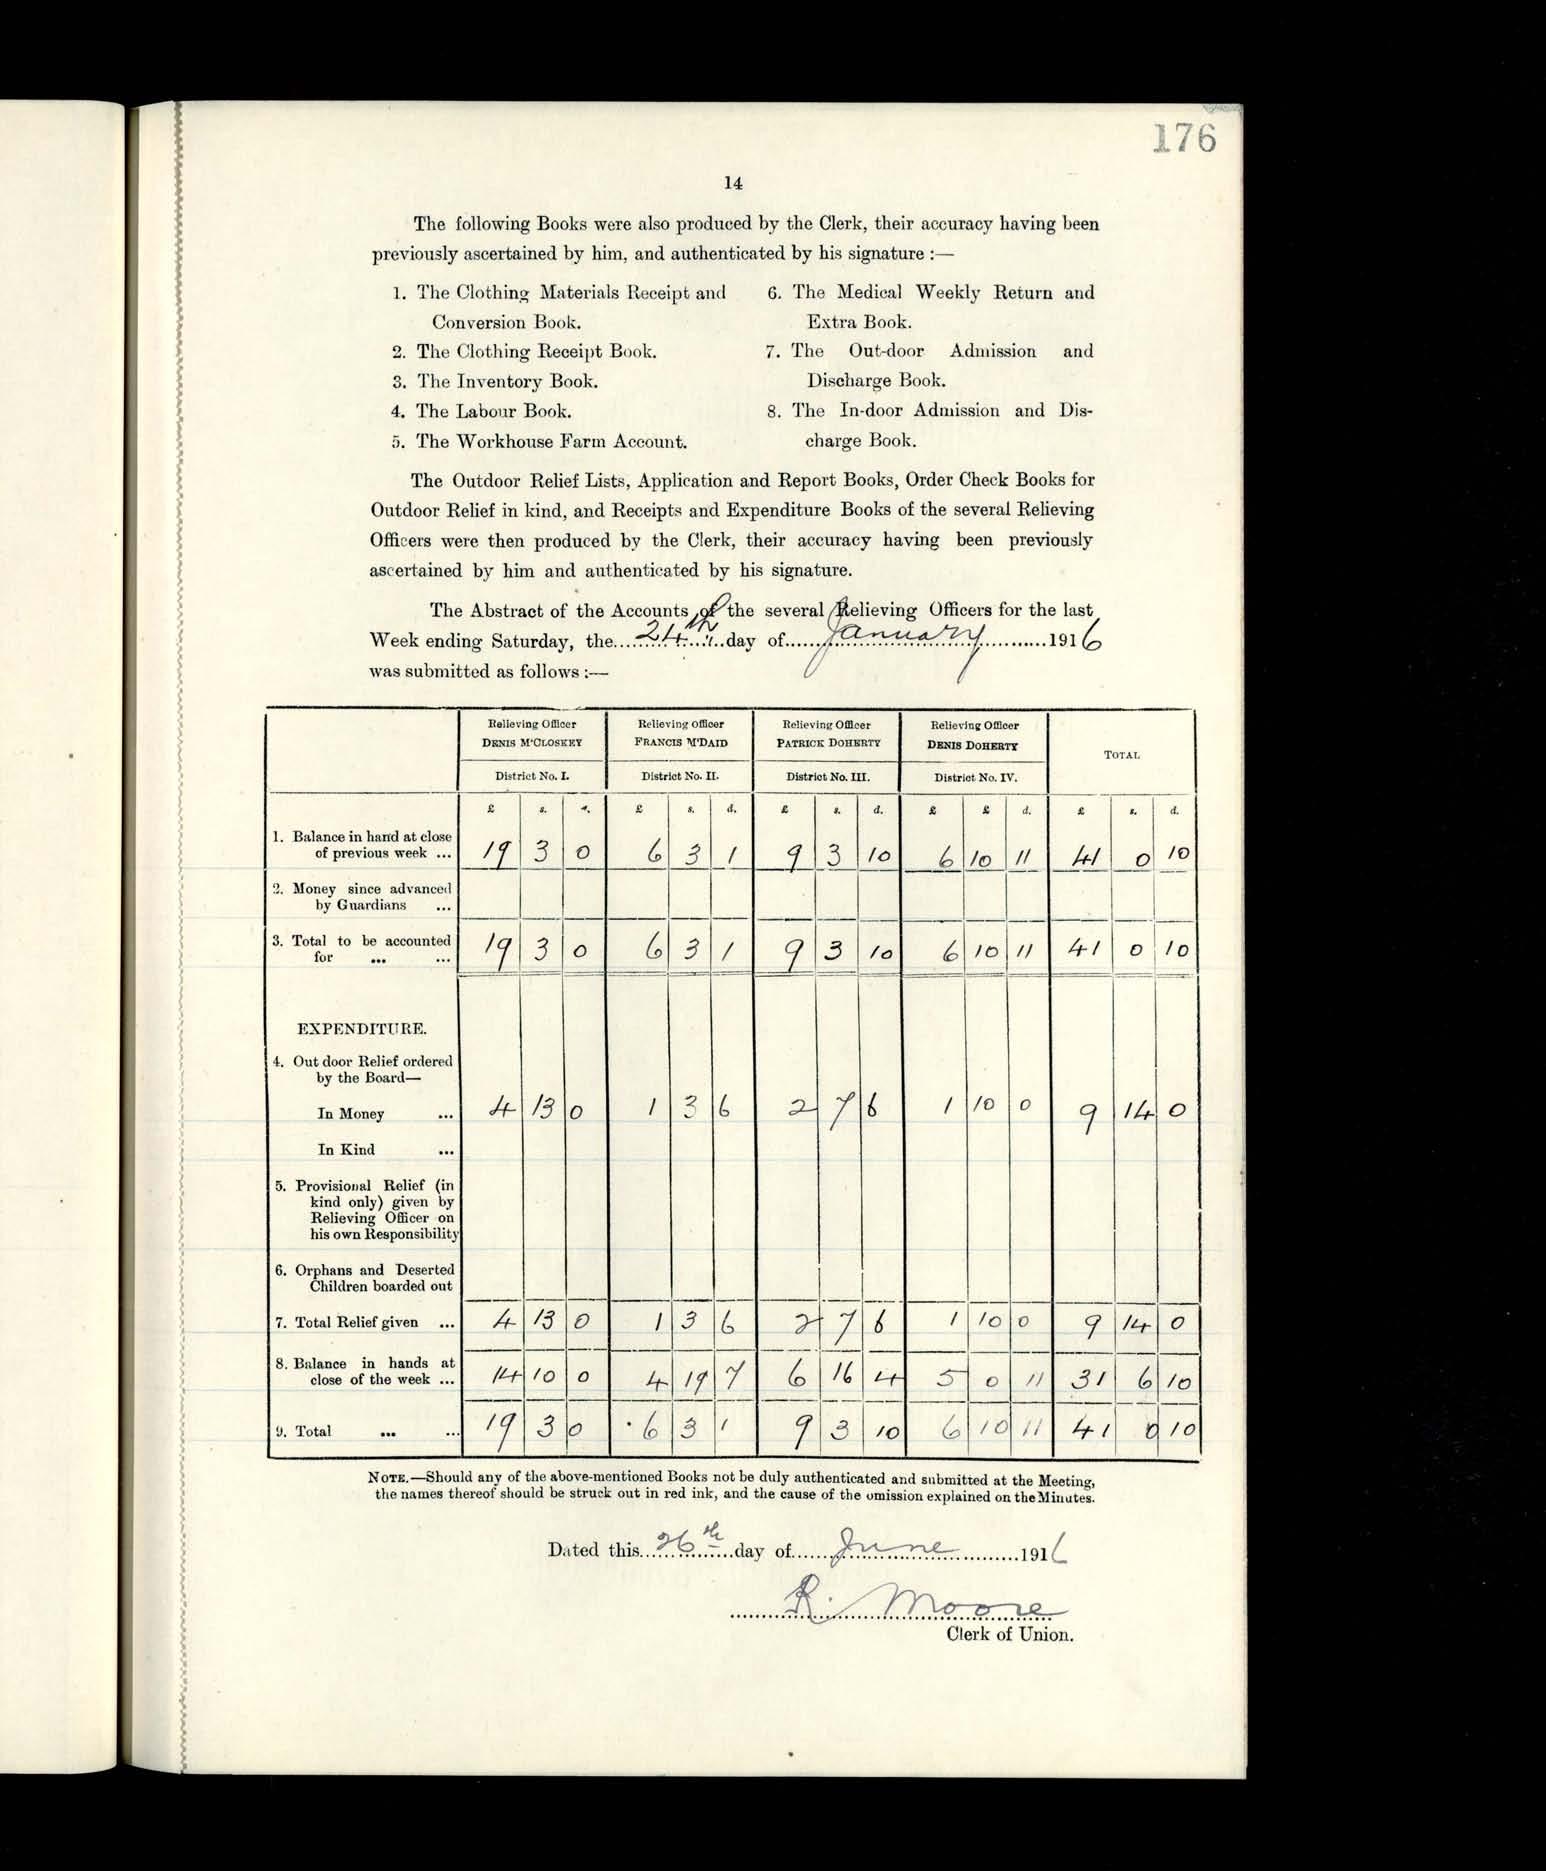 176
14
The following Books were also produced by the Clerk, their accuracy having been
previously ascertained by him, and authenticated by his signature :—
1. The Clothing Materials Receipt and
Conversion Book.
2. The Clothing Receipt Book.
3. The Inventory Book.
4. The Labour Book.
5. The Workhouse Farm Account.
6. The Medical Weekly Return and
Extra Book.
7. The Out-door Admission and
Discharge Book.
8. The In-door Admission and Dis-
charge Book.
The Outdoor Relief Lists, Application and Report Books, Order Check Books for
Outdoor Relief in kind, and Receipts and Expenditure Books of the several Relieving
Officers were then produced by the Clerk, their accuracy having been previously
ascertained by him and authenticated by his signature.
The Abstract of the Accounts of the several Relieving Officers for the last
Week ending Saturday, the 24th day of January 1916
was submitted as follows :—
Relieving Officer Relieving Officer Relieving Officer Relieving Officer
DENIS M'CLOSKEY FRANCIS M'DAID PATRICK DOHERTY DENIS DOHERTY TOTAL
District No. I. District No. II. District No. III. District No. IV.
£ s. d. £ s. d. £ s. d. £ £ d. £ s. d.
1. Balance in hand at close
of previous week ... 19 3 0 6 3 1 9 3 10 6 10 11 41 0 10
2. Money since advanced
by Guardians ...
3. Total to be accounted
for ... ... 19 3 0 6 3 1 9 3 10 6 10 11 41 0 10
EXPENDITURE.
4. Out door Relief ordered
by the Board—
In Money ... 4 13 0 1 3 6 2 7 6 1 10 0 9 14 0
In Kind ...
5. Provisional Relief (in
kind only) given by
Relieving Officer on
his own Responsibility
6. Orphans and Deserted
Children boarded out
7. Total Relief given ... 4 13 0 1 3 6 2 7 6 1 10 0 9 14 0
8. Balance in hands at
close of the week ... 14 10 0 4 19 7 6 16 4 5 0 11 31 6 10
9. Total ... ... 19 3 0 6 3 1 9 3 10 6 10 11 41 0 10
NOTE.—Should any of the above-mentioned Books not be duly authenticated and submitted at the Meeting,
the names thereof should be struck out in red ink, and the cause of the omission explained on the Minutes.
Dated this 26th day of June 1916
R. Moore
Clerk of Union.